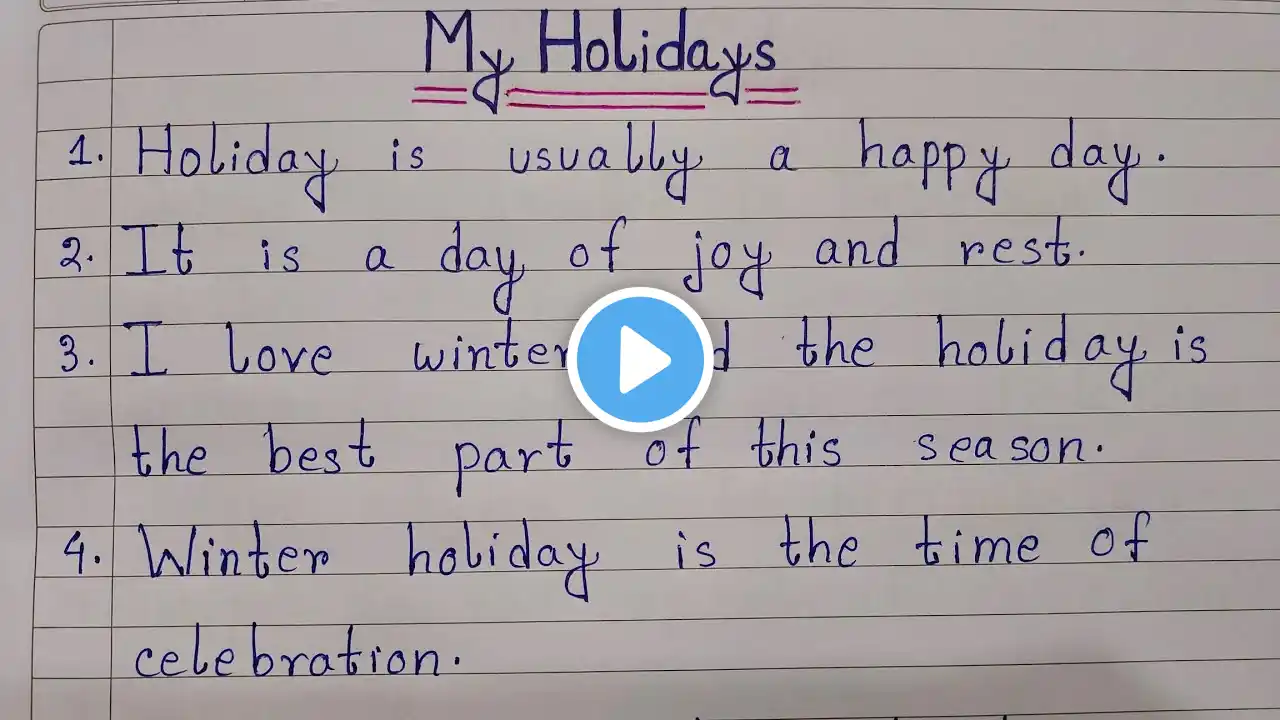 My Holidays
1. Holiday is usually a happy day.
2. It is a day of joy and rest.
3. I love winter the holiday is
the best part of this season.
4. Winter holiday is the time of
celebration.